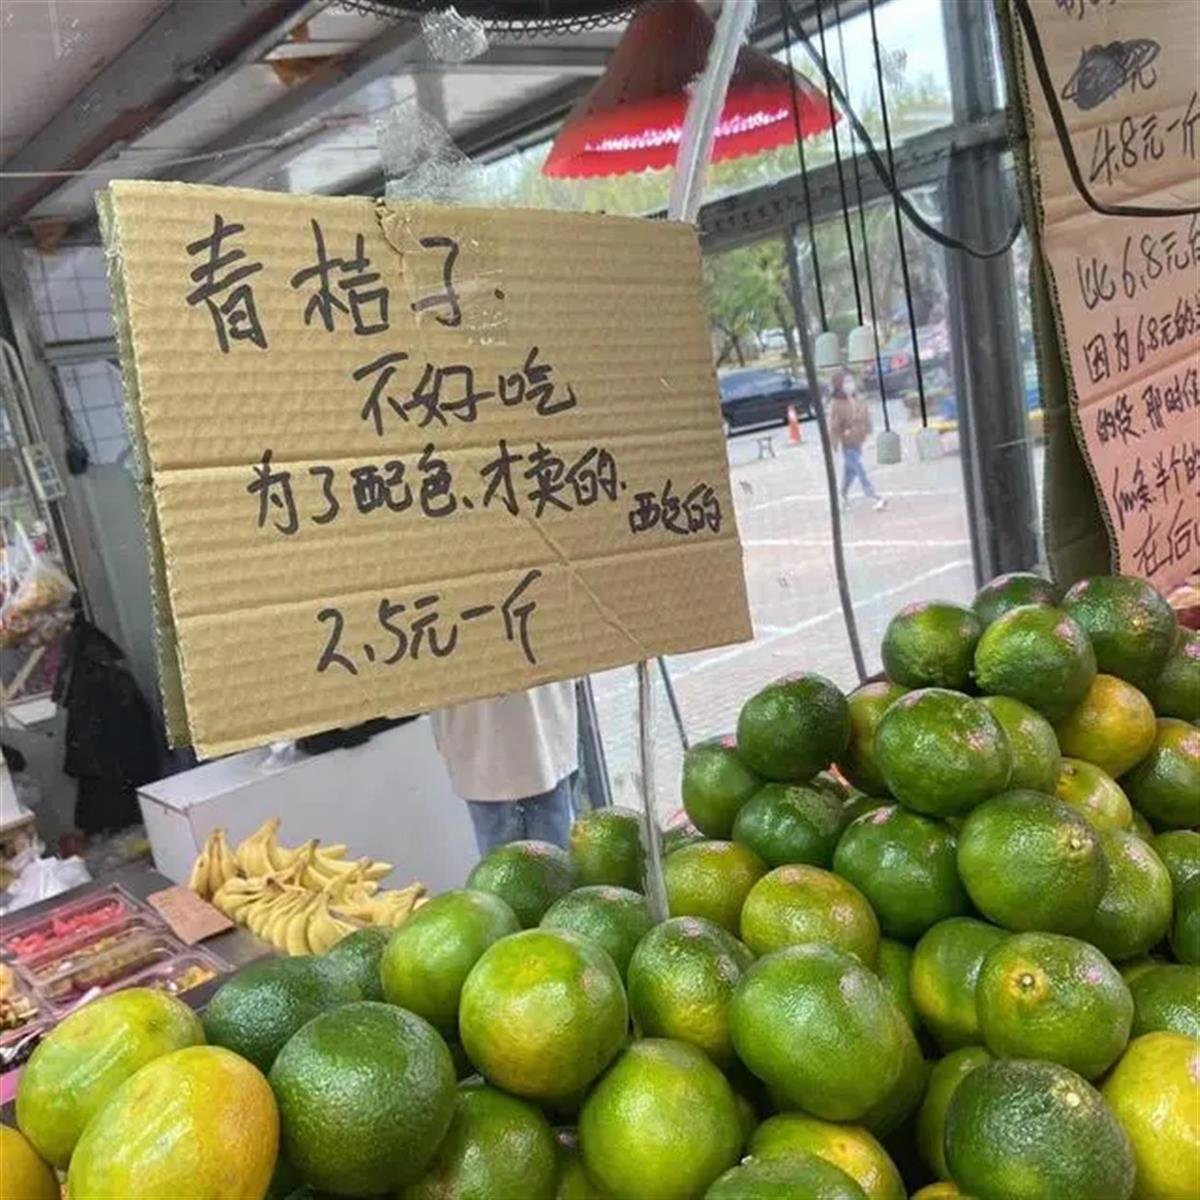 青桔子.
不好吃
为了配色、才卖的.
配色的
2.5元一斤
元
4.8元一斤
比6.8元
因为6.8元的
的货.那时
半个的
在后